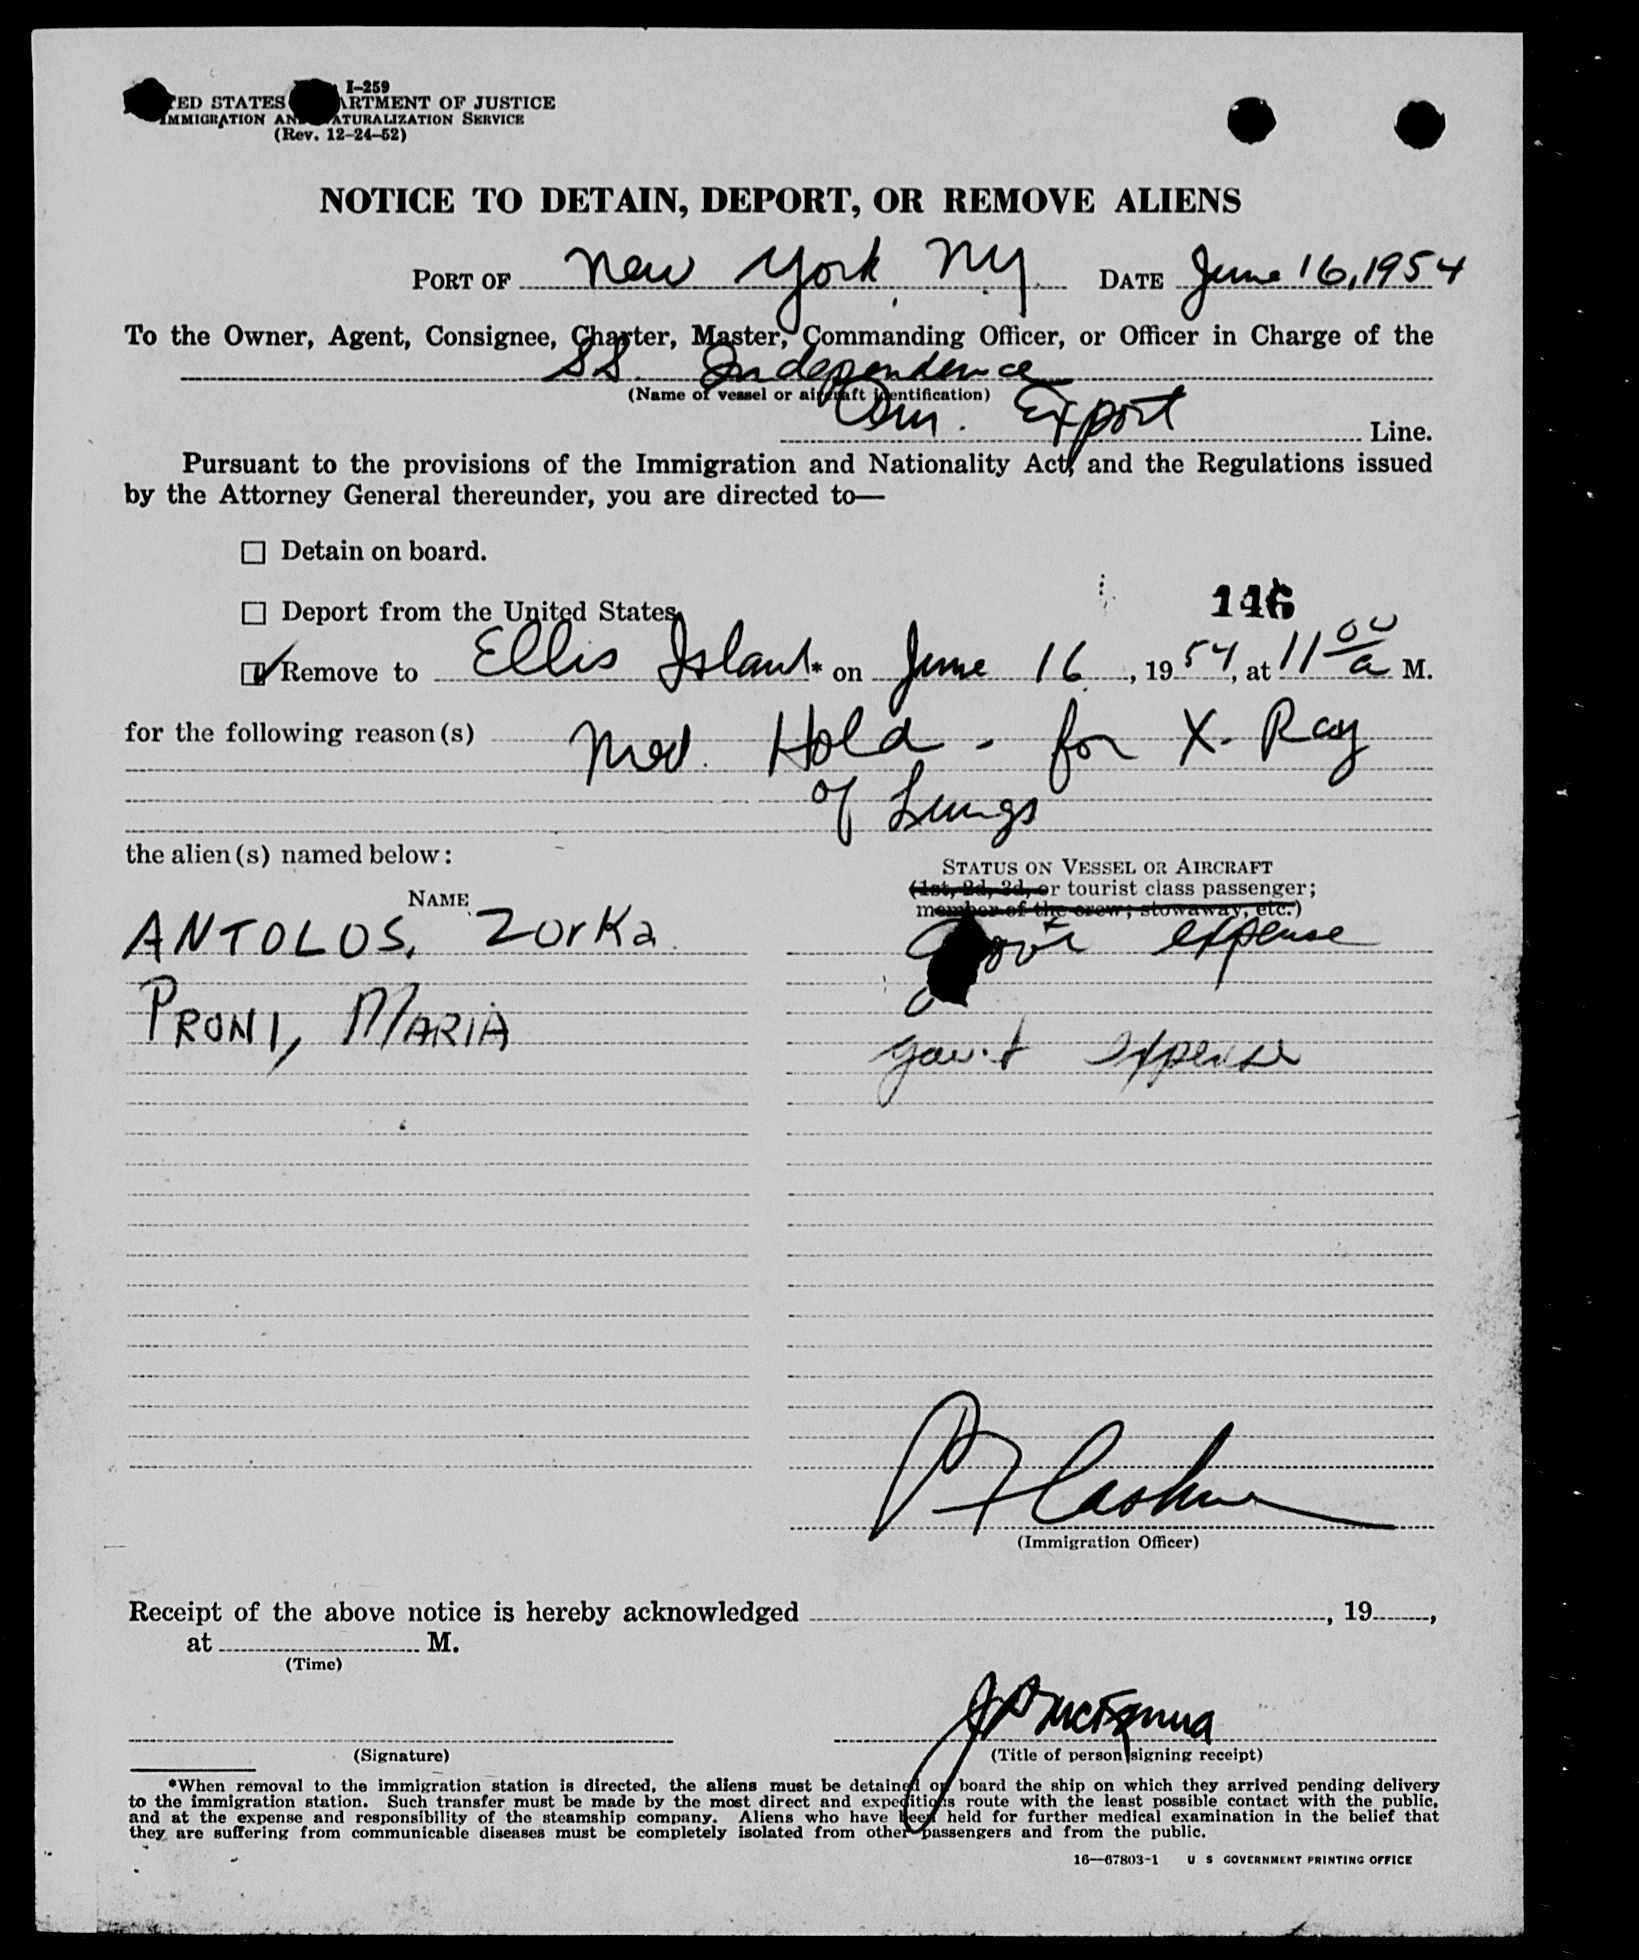 I-259
ED STATES ARTMENT OF JUSTICE
IMMIGRATION AN ATURALIZATION SERVICE
(Rev. 12-24-52)
NOTICE TO DETAIN, DEPORT, OR REMOVE ALIENS
PORT OF New York, NY DATE June 16, 1954
To the Owner, Agent, Consignee, Charter, Master, Commanding Officer, or Officer in Charge of the
SS. Independence
(Name of vessel or aircraft identification)
Am. Export Line.
Pursuant to the provisions of the Immigration and Nationality Act, and the Regulations issued
by the Attorney General thereunder, you are directed to—
Detain on board.
146
Deport from the United States.
Remove to Ellis Island* on June 16, 1954, at 11 00 a M.
for the following reason(s) Med. Hold - for X-Ray
of Lungs
the alien(s) named below:
STATUS ON VESSEL OR AIRCRAFT
(1st, 2d, 3d, or tourist class passenger;
member of the crew; stowaway, etc.)
NAME
ANTOLOS, Zorka Gov't expense
PRONI, MARIA
gov't expense
(Immigration Officer)
Receipt of the above notice is hereby acknowledged , 19 ,
at M.
(Time)
(Signature) (Title of person signing receipt)
*When removal to the immigration station is directed, the aliens must be detained on board the ship on which they arrived pending delivery
to the immigration station. Such transfer must be made by the most direct and expeditious route with the least possible contact with the public,
and at the expense and responsibility of the steamship company. Aliens who have been held for further medical examination in the belief that
they are suffering from communicable diseases must be completely isolated from other passengers and from the public.
16—67803-1 U S GOVERNMENT PRINTING OFFICE